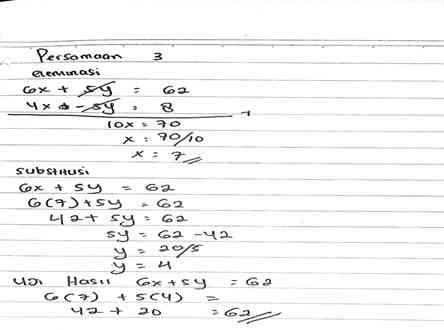 Persamaan 3
eleminasi
6x + 5y = 62
4x - 5y = 8
10x = 70
x = 70/10
x = 7
substitusi
6x + 5y = 62
6(7) + 5y = 62
42 + 5y = 62
5y = 62 - 42
y = 20/5
y = 4
Uji Hasil 6x + 5y = 62
6(7) + 5(4) =
42 + 20 = 62